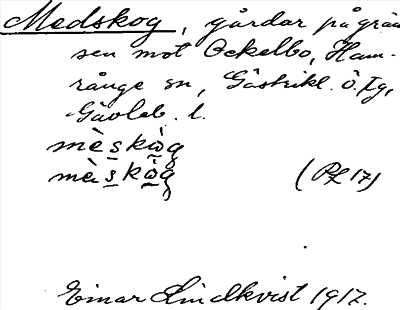 Medskog, gårdar på grän
sen mot Ockelbo, Ham-
rånge sn, Gästrikl. ö. tg,
Gävleb. l.
mè̀skò̱g
mè̀skò̱g
(Pl 17)
Einar Lindkvist 1917.